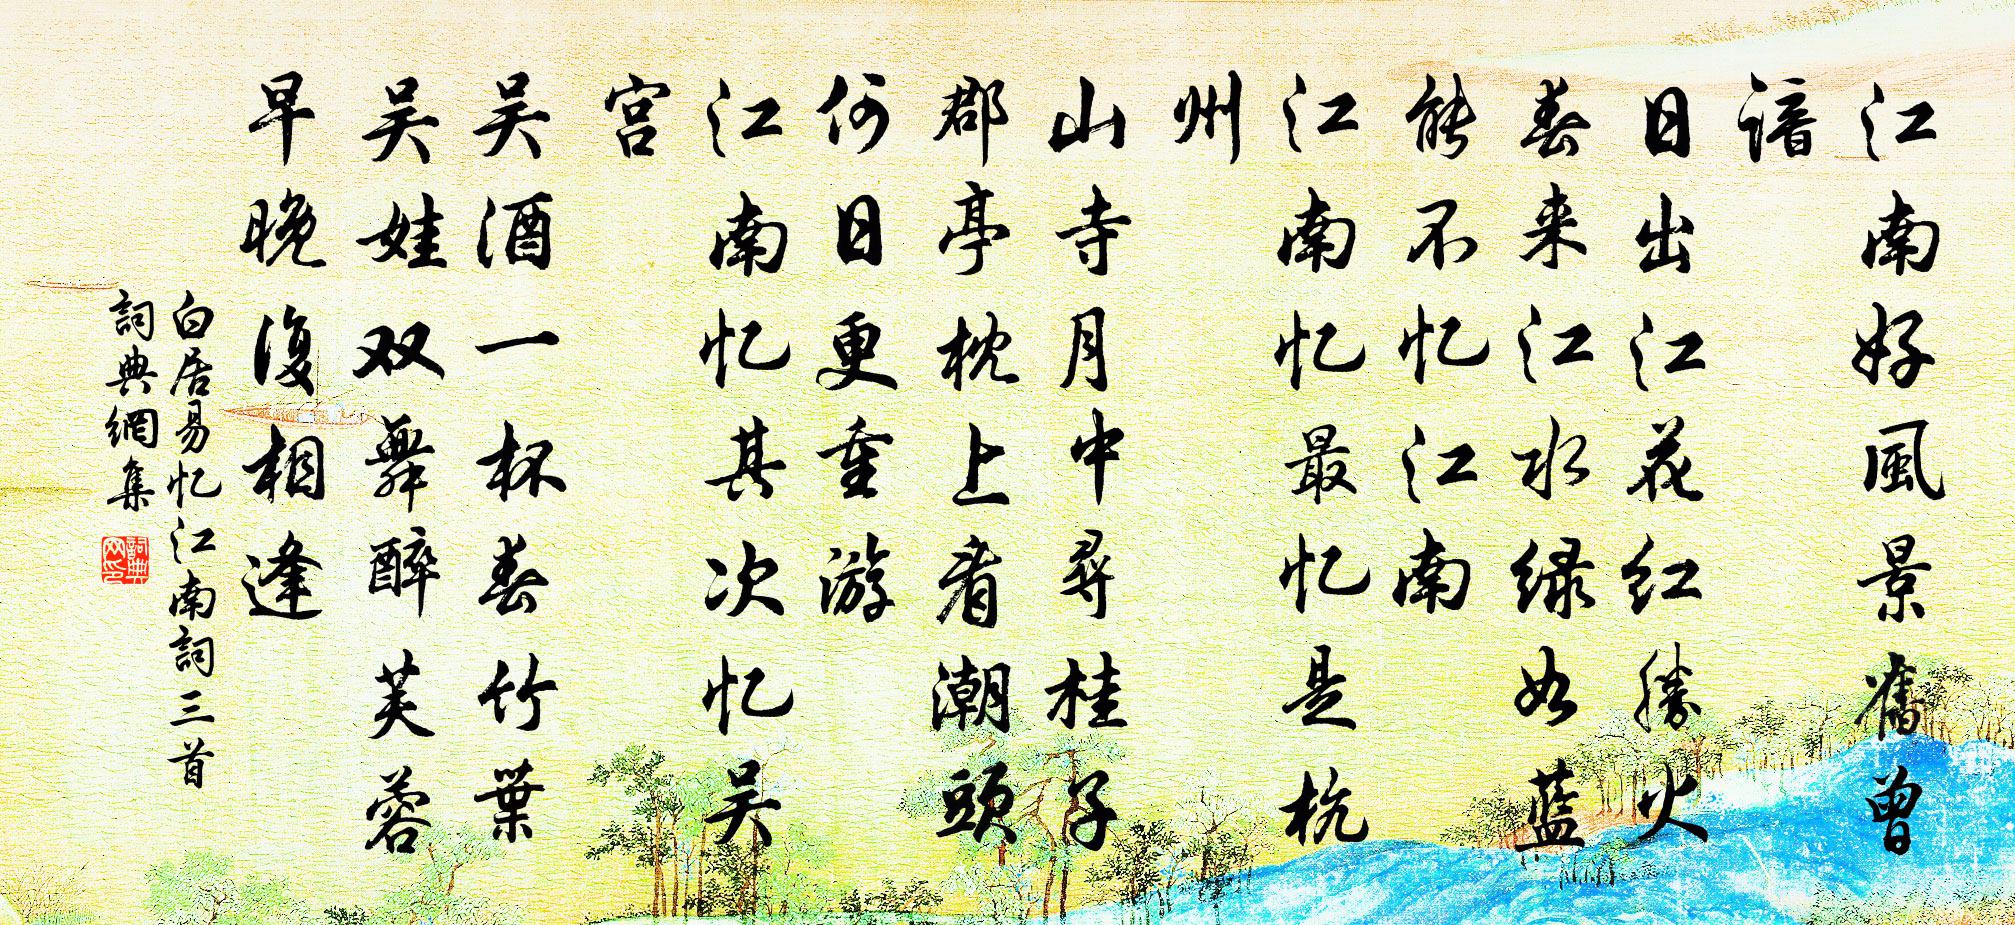 江南好風景舊曾
諳
日出江花红勝火
春来江水绿如藍
能不忆江南
江南忆最忆是杭
州
山寺月中尋桂子
郡亭枕上看潮頭
何日更重游
江南忆其次忆吴
宫
吴酒一杯春竹葉
吴娃双舞醉芙蓉
早晚復相逢
白居易忆江南詞三首
詞典網集
詞典
网印